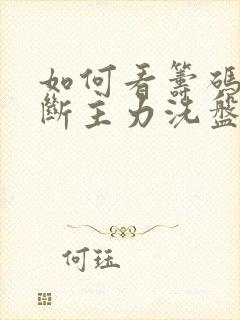 如何看籌碼
斷主力洗盤
何珏